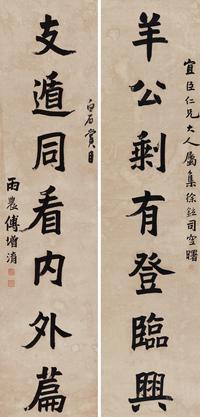 宜臣仁兄大人屬集徐鉉司空曙
羊公剩有登臨興
賞
支遁同看内外篇
雨農傅增淯